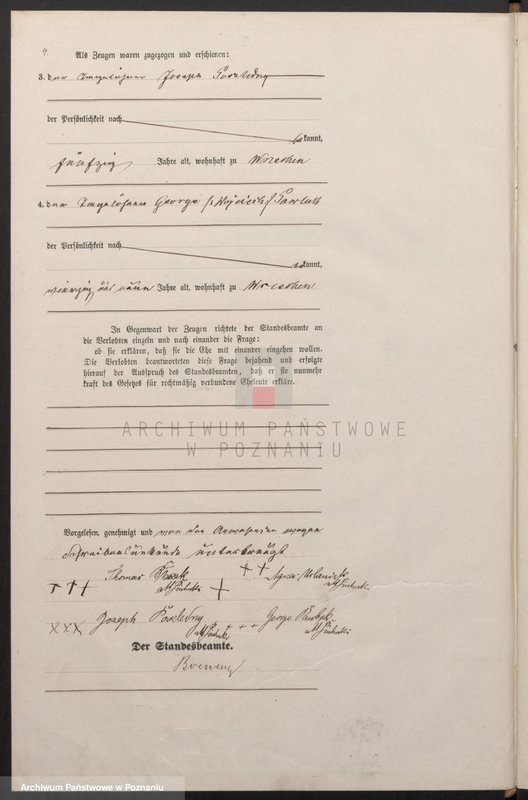 4.
Als Zeugen waren zugezogen und erschienen:
3. der Tagelöhner Joseph Posledny
der Persönlichkeit nach
bekannt,
fünfzig Jahre alt, wohnhaft zu Wreschen
4. der Tagelöhner George
der Persönlichkeit nach
bekannt,
vierzig und neun Jahre alt, wohnhaft zu Wreschen
In Gegenwart der Zeugen richtete der Standesbeamte an
die Verlobten einzeln und nach einander die Frage:
ob sie erklären, daß sie die Ehe mit einander eingehen wollen.
Die Verlobten beantworteten diese Frage bejahend und erfolgte
hierauf der Ausspruch des Standesbeamten, daß er sie nunmehr
kraft des Gesetzes für rechtmäßig verbundene Eheleute erkläre.
ARCHIWUM PAŃSTWOWE
W POZNANIU
Vorgelesen, genehmigt und von den Anwesenden wegen
Schreibensunkunde unterkreuzt
+++ Thomas + ++ Agnes
xxx Joseph Posledny +++ George
Der Standesbeamte.
Archiwum Państwowe w Poznaniu